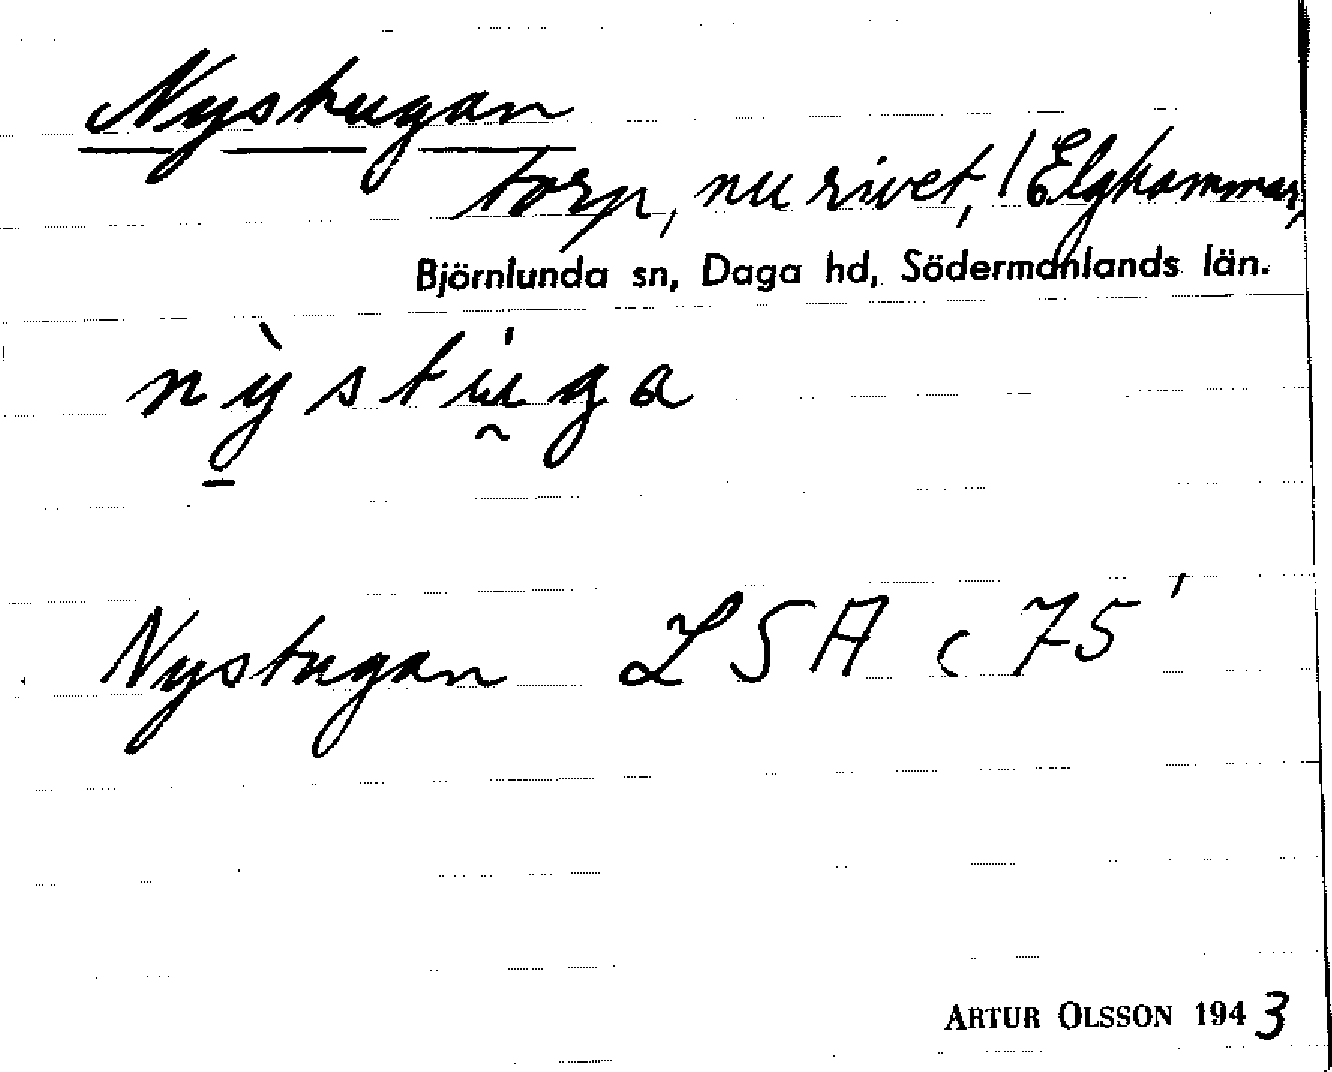 Nystugan
torp, nu rivet, / Elghammar,
Björnlunda sn, Daga hd, Södermanlands län.
nỳstu̯ga
Nystugan LSA c 75'
ARTUR OLSSON 1943